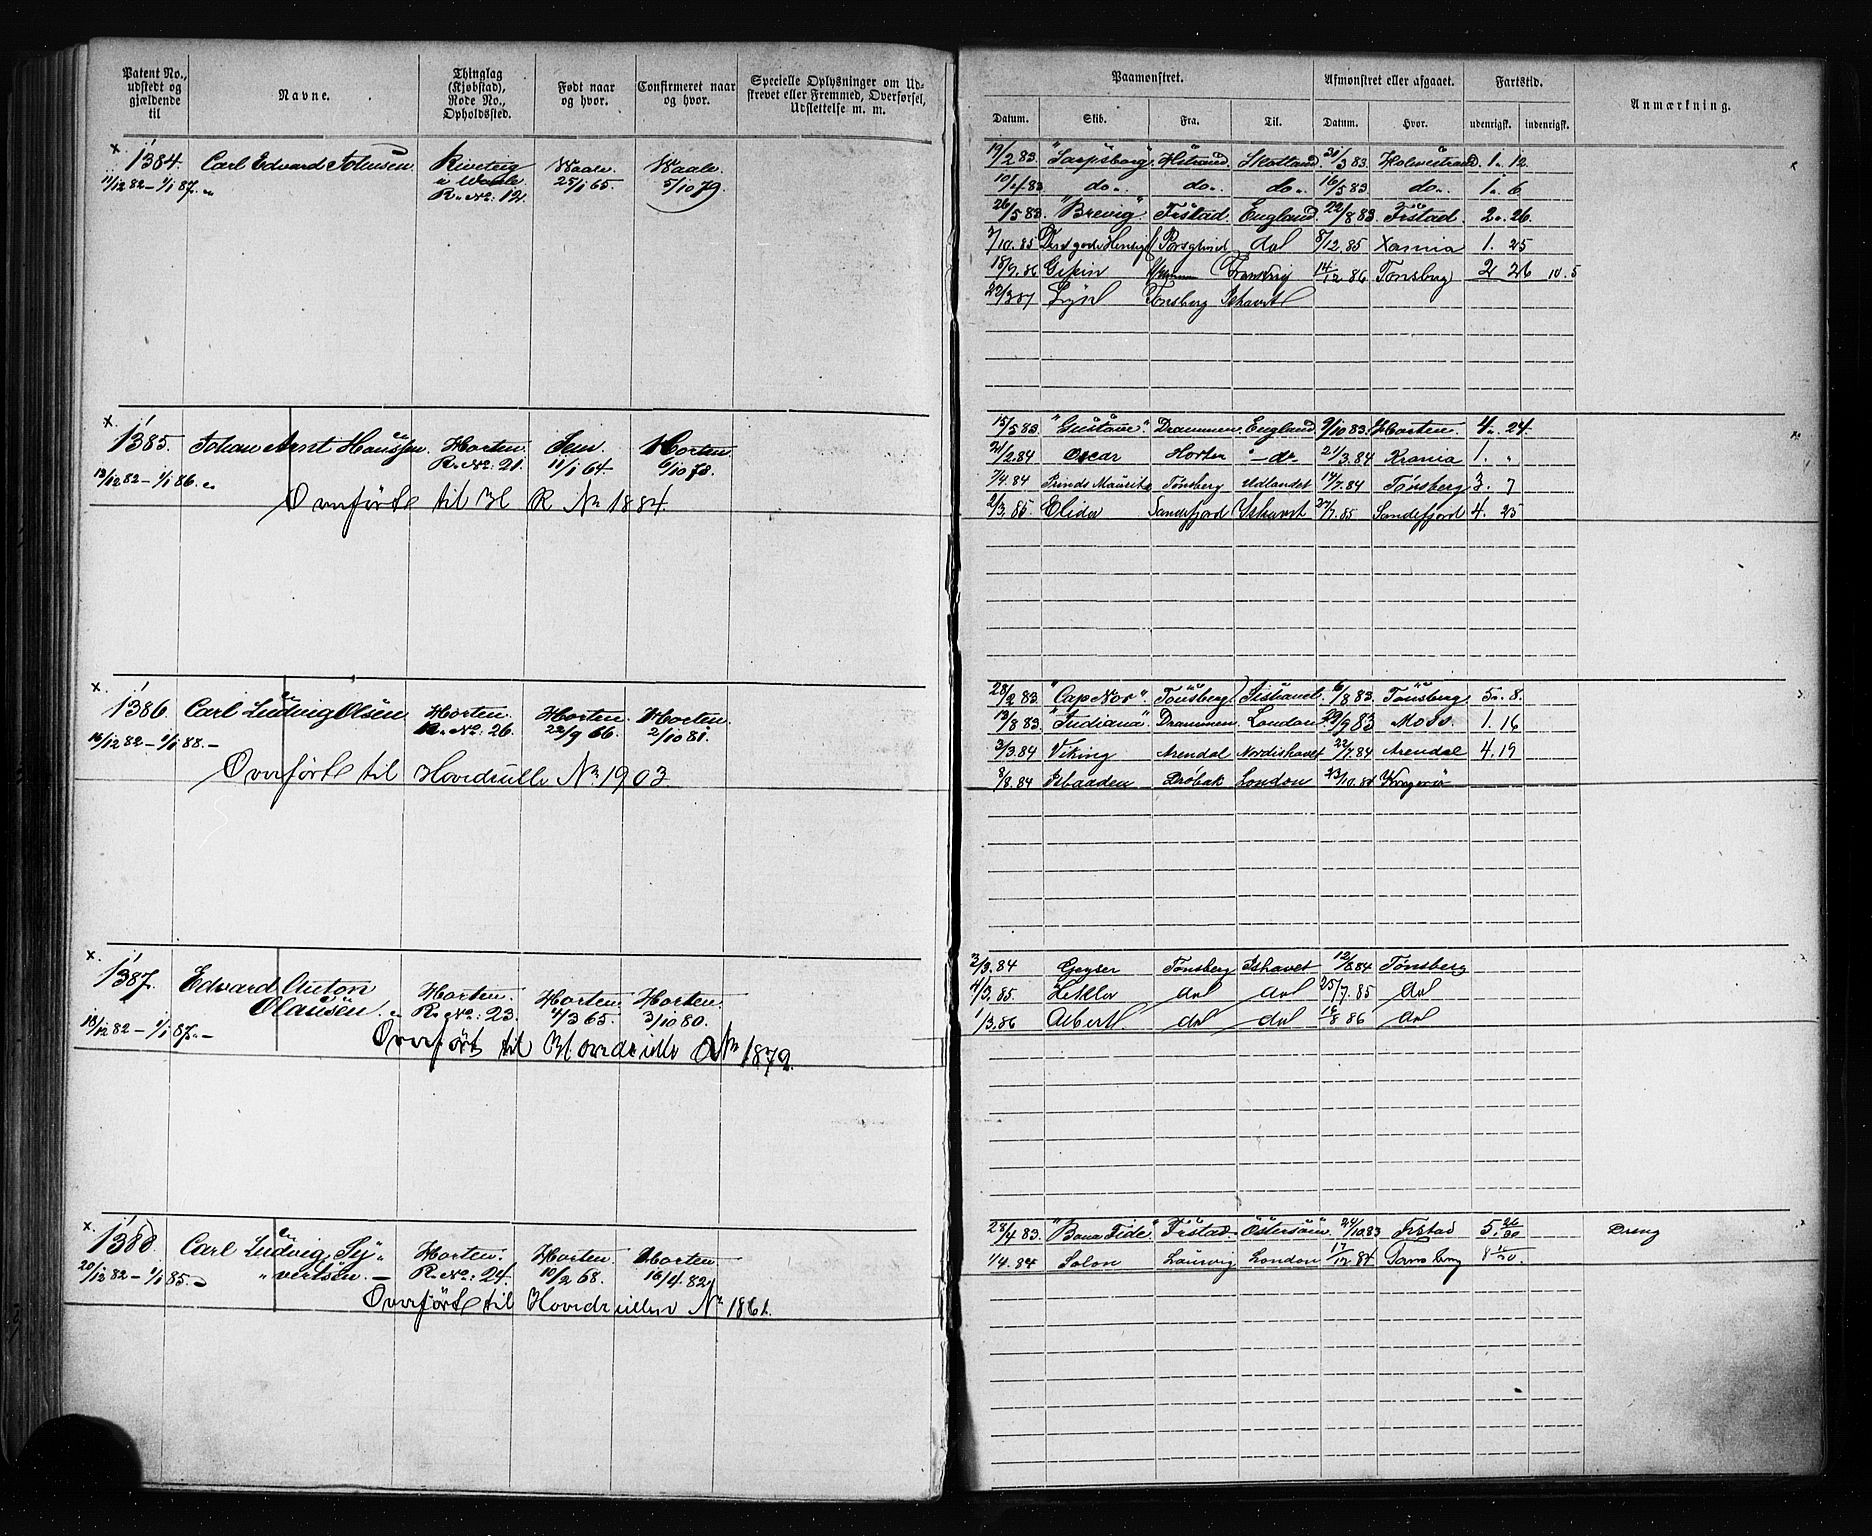 Patent No., udstedt og gjældende til
Navne.
Thinglag (Kjøbstad), Rode No., Opholdssted.
Født naar og hvor.
Confirmeret naar og hvor.
Specielle Oplysninger om Udstrevet eller Fremmed, Overførsel, Udslettelse m. m.
Paamønstret.
Afmønstret eller afgaaet.
Fartstid.
Anmærkning.
Datum. Skib. Fra. Til. Datum. Hvor. udenrigsk. indenrigsk.
x 1384. Carl Edvard
11/12 82 – 1/1 87.
R. No: 12.
Waale 25/1 65.
Waale 5/10 79
19/2 83. "Sarpsborg" Skotland 31/3 83. Holmestrand 1. 12.
10/4 83 do. do. do. 16/5 83. do. 1. 6
26/5 83. "Brevig" Frstad. England. 22/8 83. Frstad. 2. 26.
7/10. 85 dol 8/12. 85 Xania 1. 25
18/9. 86 14/12 86 Tønsberg 2 26 10. 5
22/3 87 Tønsberg Ishavet
x 1385. Johan Arnt Hanssen
13/12 82 – 1/1 86.
Horten. R. No: 21.
11/1 64.
Horten 6/10 78.
Overført til H R No 1884.
15/5 83. "Gustave". Drammen. England. 9/10 83. Horten. 4. 24.
21/2. 84 Oscar Horten - do - 21/3. 84 Krania 1. "
7/4. 84 Prinds Mauritz Tønsberg Udlandet 14/7. 84 Tønsberg 3. 7
2/3. 85 Elida Sandefjord Ishavet 27/7. 85 Sandefjord 4. 25
x 1386. Carl Ludvig Olsen
16/12 82 – 1/1 88. –
Horten. R. No: 26.
Horten. 22/9 66.
Horten. 2/10 81.
Overført til Hovedrulle No 1903.
28/2 83. "Cap Nor" Tønsberg Ishavet. 6/8 83. Tønsberg. 5. 8.
13/8 83. "Indiana" Drammen. London. 29/9 83 Moss. 1. 16
3/3. 84 Viking Arendal Nordishavet 22/7. 84 Arendal 4. 19
8/8. 84 Isbaaden Drøbak London 23/10. 84
x 1387. Edvard Anton
Olausen.
13/12 82 – 1/1 87. –
Horten. R. No: 23.
Horten 4/3 65.
Horten 3/10 80.
Overført til Hovedrulle No 1879.
2/3. 84 Geyser Tønsberg Ishavet 12/8. 84 Tønsberg
4/3. 85. Hekla dol dol 25/7. 85 dol
1/3. 86 Albert dol dol 16/8 86 dol
x 1388. Carl Ludvig Sy-
vertsen. –
20/12 82 – 1/1 85. –
Horten. R. No: 24.
Horten 10/2 68.
Horten 16/4 82.
Overført til Hovedrullen No 1861.
28/4 83. "Bona Fide" Frstad. Østersøen. 24/10. 83 Frstad 5. 26/30 Dreng
1/4. 84 Solon Laurvig London 17/12. 84 Tønsberg 8